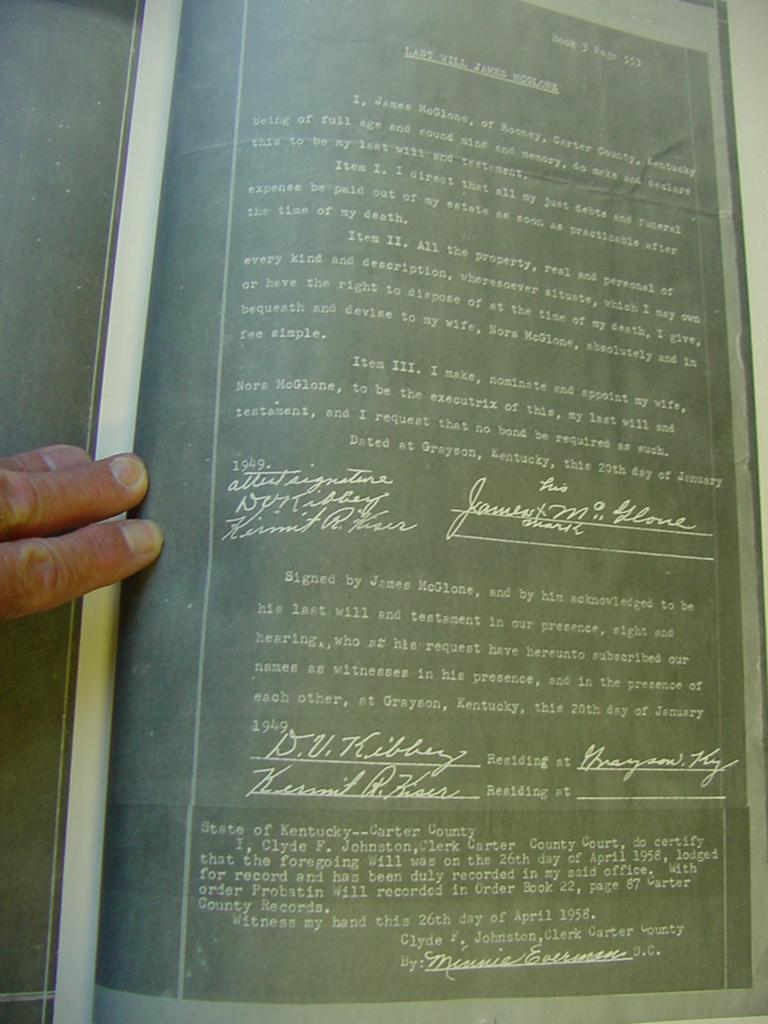 Book 3 Page 553
LAST WILL JAMES MCGLONE
I, James McGlone, of Rooney, Carter County, Kentucky
being of full age and sound mind and memory, do make and declare
this to be my last will and testament.
Item I. I direct that all my just debts and funeral
expense be paid out of my estate as soon as practicable after
the time of my death.
Item II. All the property, real and personal of
every kind and description, wheresoever situate, which I may own
or have the right to dispose of at the time of my death, I give,
bequeath and devise to my wife, Nora McGlone, absolutely and in
fee simple.
Item III. I make, nominate and appoint my wife,
Nora McGlone, to be the executrix of this, my last will and
testament, and I request that no bond be required as such.
Dated at Grayson, Kentucky, this 20th day of January
1949.
attest signature
D V Kibbey
Kermit R. Kiser
his
James x McGlone
mark
Signed by James McGlone, and by him acknowledged to be
his last will and testament in our presence, sight and
hearing, who at his request have hereunto subscribed our
names as witnesses in his presence, and in the presence of
each other, at Grayson, Kentucky, this 20th day of January
1949
D. V. Kibbey Residing at Grayson, Ky
Kermit R. Kiser Residing at
State of Kentucky--Carter County
I, Clyde F. Johnston,Clerk Carter County Court, do certify
that the foregoing Will was on the 26th day of April 1958, lodged
for record and has been duly recorded in my said office. With
order Probatin Will recorded in Order Book 22, page 87 Carter
County Records.
Witness my hand this 26th day of April 1958.
Clyde F. Johnston,Clerk Carter County
By: Minnie Everman D.C.